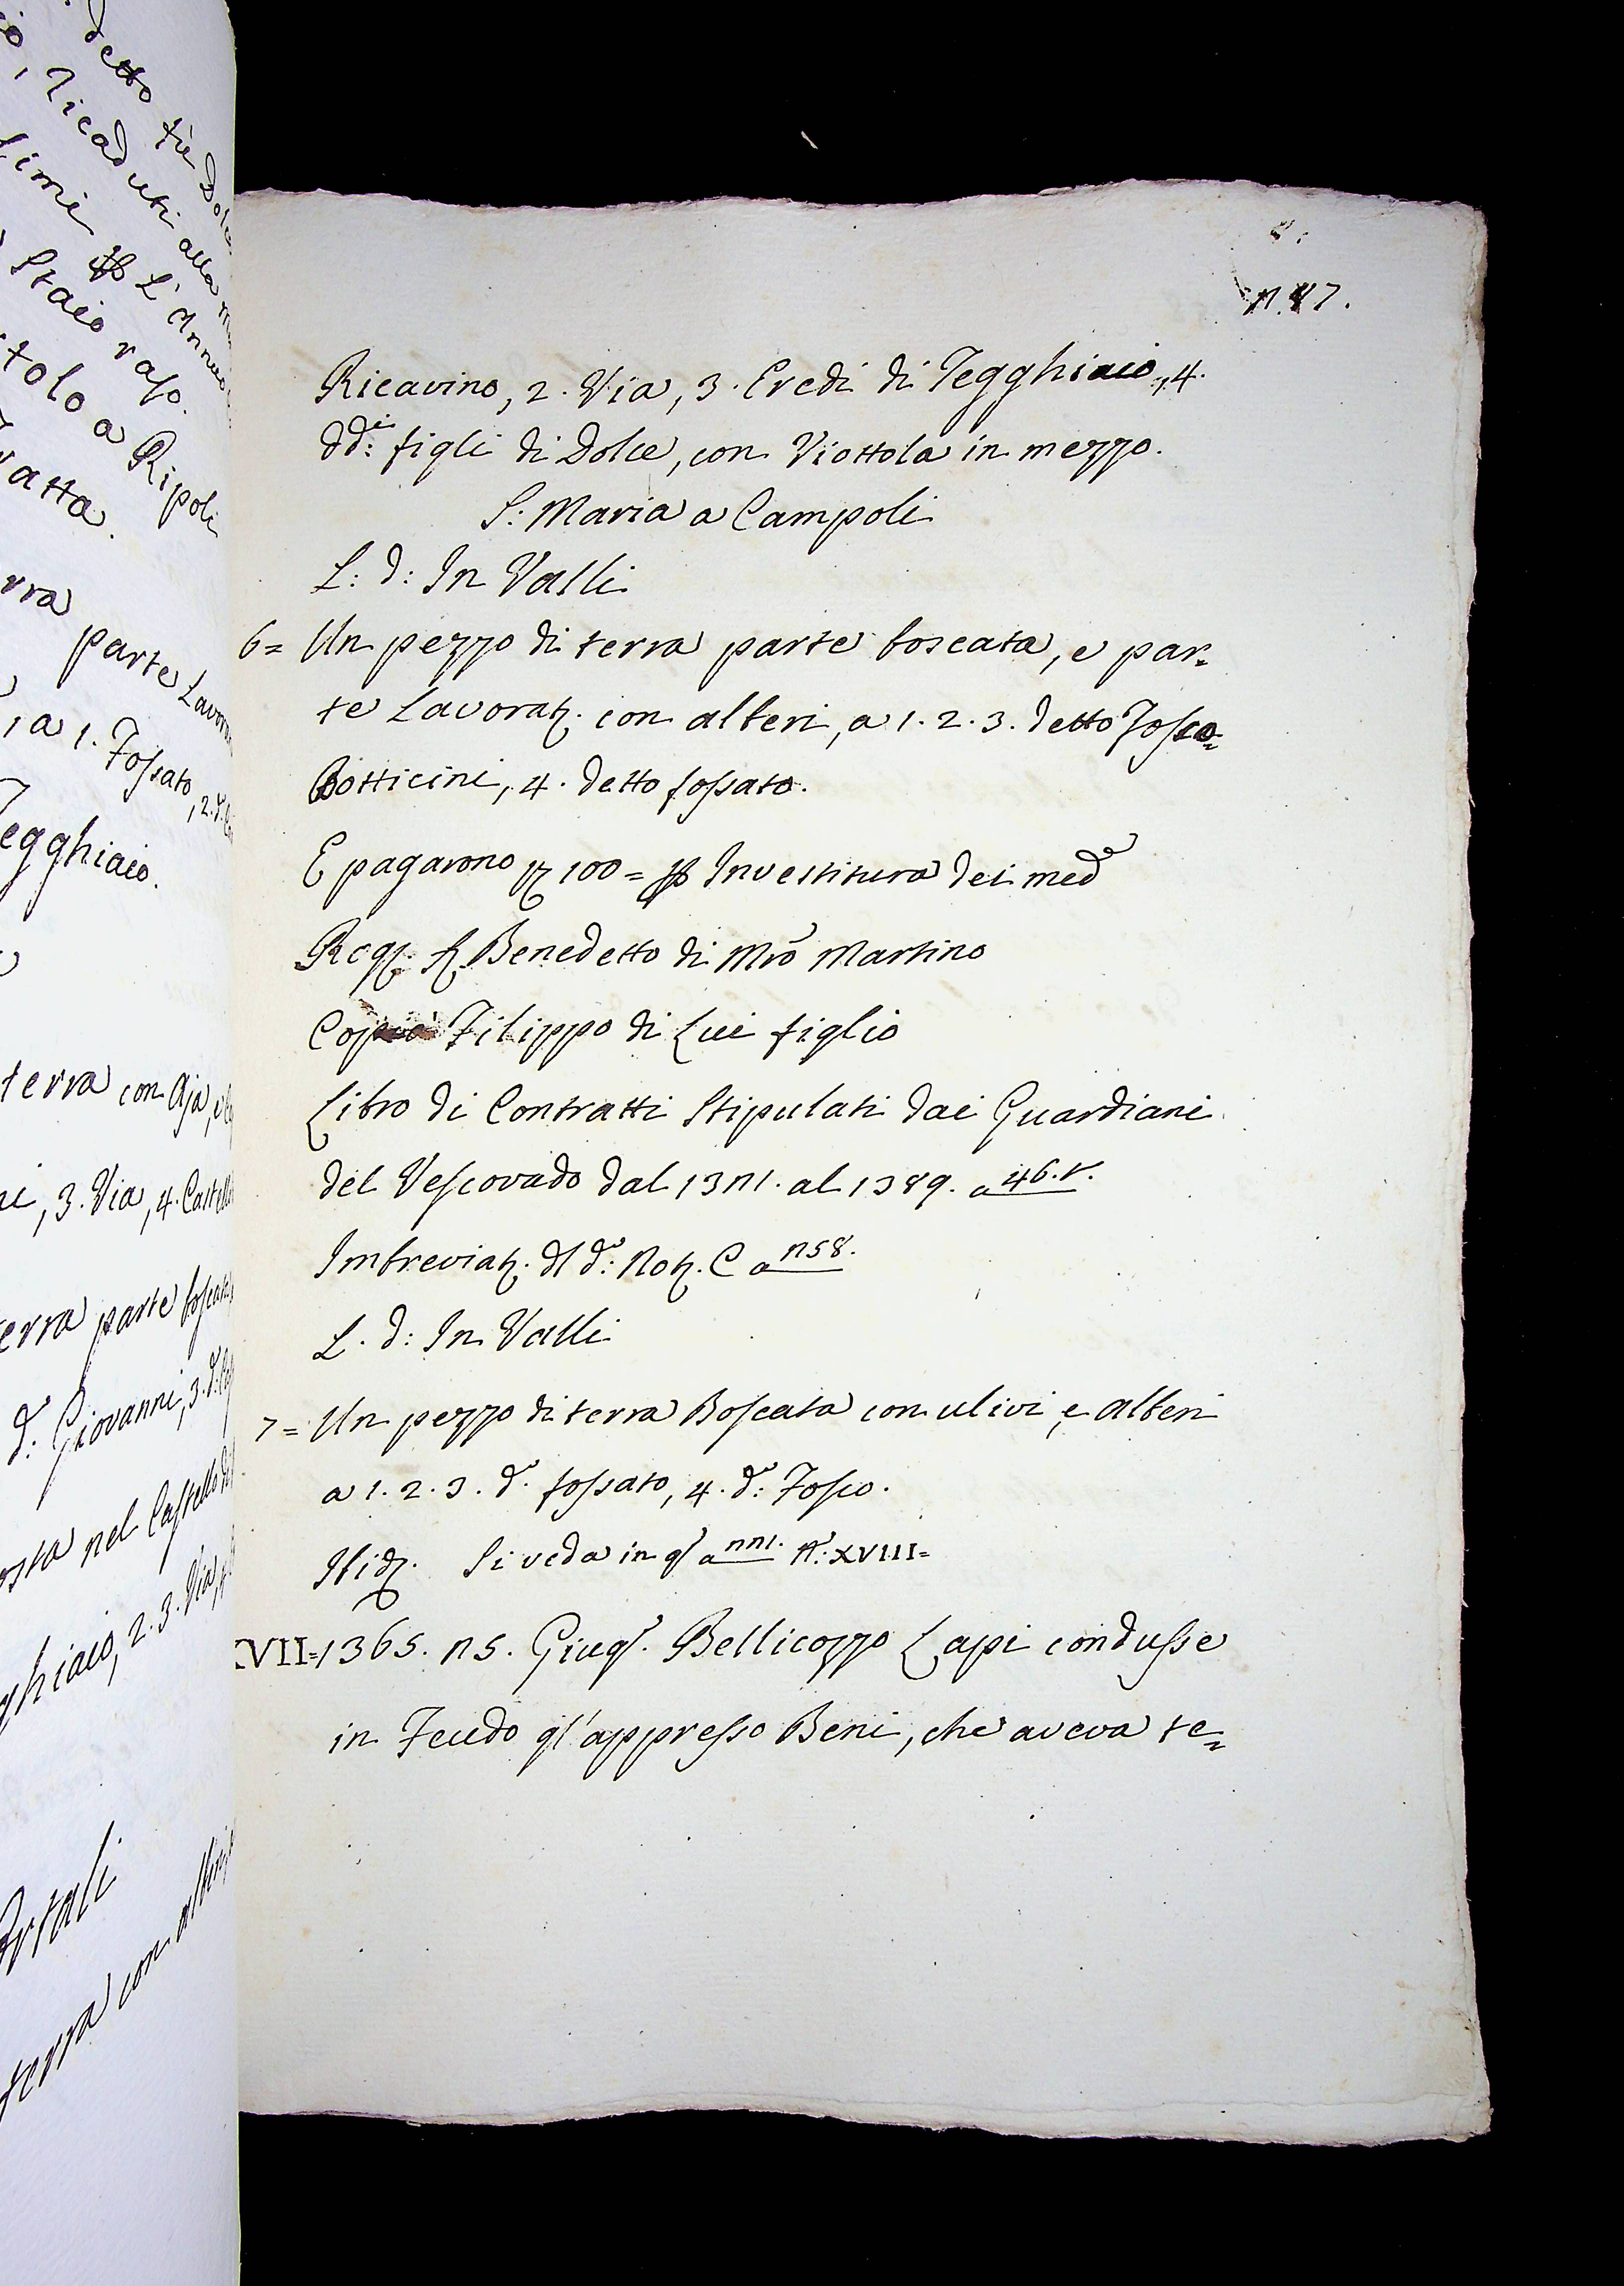 detto fù Dolce
io, Ricaduti alla
Staio raso.
Ripoli
parte Lavor
a 1. Fossato, 2.
Tegghiaio.
terra con Aja, e
3. Via, 4. Castell
terra parte boscata
d: Giovanni, 3. d:
osta nel Castello di
ghiaio, 2. 3. Via,
terra con alberi
n. 47.
Ricavino, 2. Via, 3. Eredi di Tegghiaio, 4.
dd:i figli di Dolce, con Viottola in mezzo.
S: Maria a Campoli
L: d: In Valli
6= Un pezzo di terra parte boscata, e par=
te Lavorat. con alberi, a 1. 2. 3. detto Tosco=
Botticini, 4. detto fossato.
E pagarono 100= Investitura dei med
Rog. Benedetto di Mro Martino
Copia Filippo di Lui figlio
Libro di Contratti Stipulati dai Guardiani
del Vescovado dal 1321. al 1389. a 46. v.
Imbreviat. dl d: Not. C a 258.
L. d: In Valli
7= Un pezzo di terra Boscata con ulivi, e alberi
a 1. 2. 3. d. fossato, 4. d: Tosco.
Ibid. Si veda in q a 221. N: XVIII=
XVII= 1365. 25. Giug. Bellicozzo Lapi condusse
in Feudo gl'appresso Beni, che aveva te=